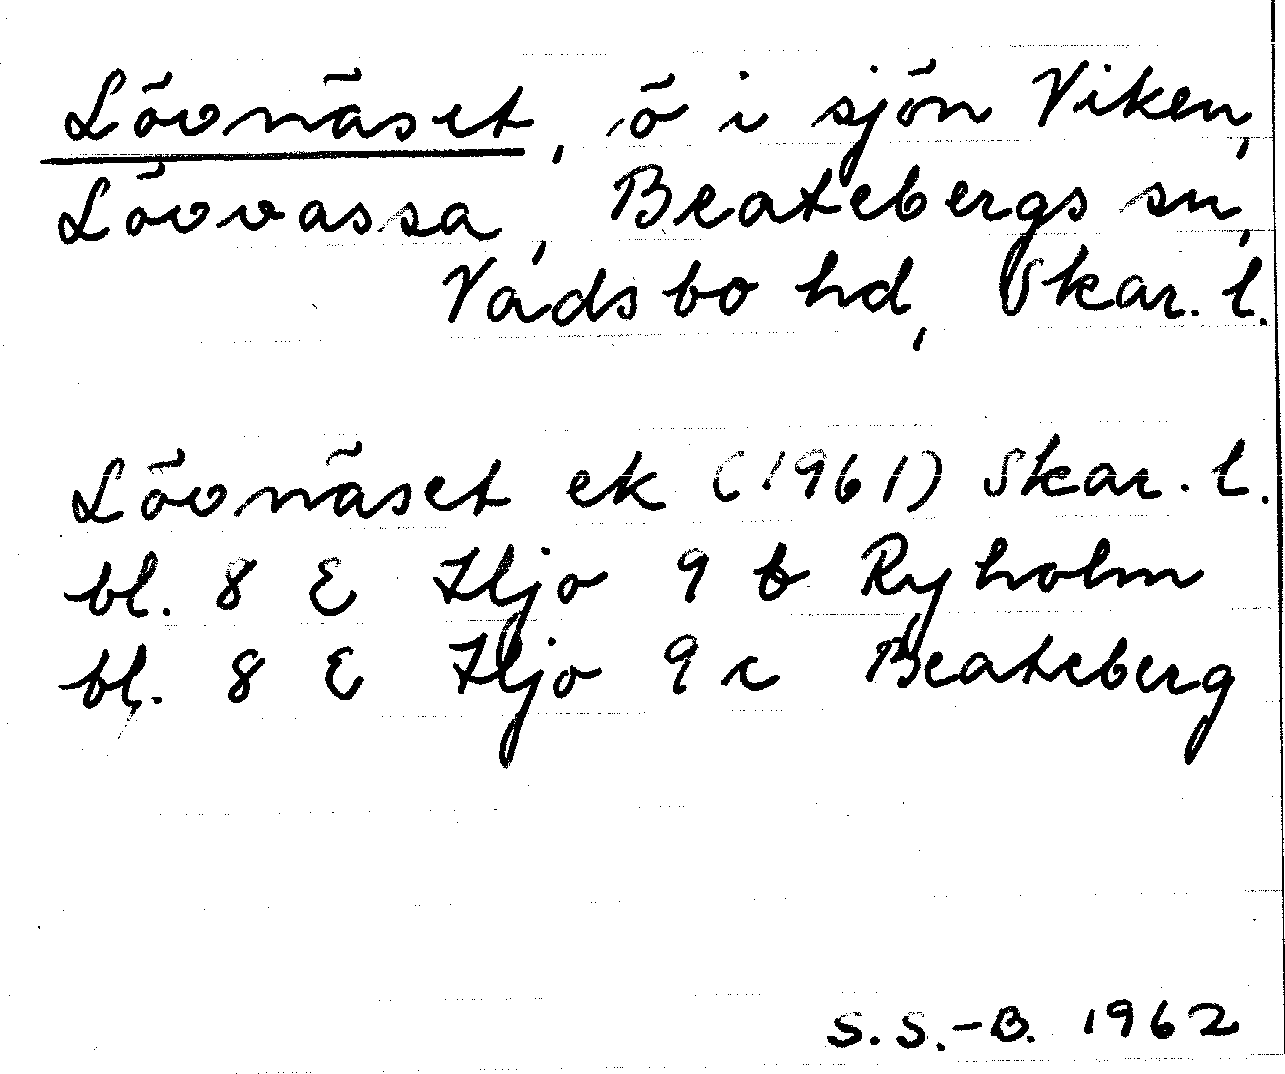 Lövnäset, ö i sjön Viken,
Lövvassa, Beatebergs sn,
Vadsbo hd, Skar. l.
Lövnäset ek (1961) Skar. l.
bl. 8 E Hjo 9 b Ryholm
bl. 8 E Hjo 9 c Beateberg
S.S.-B. 1962